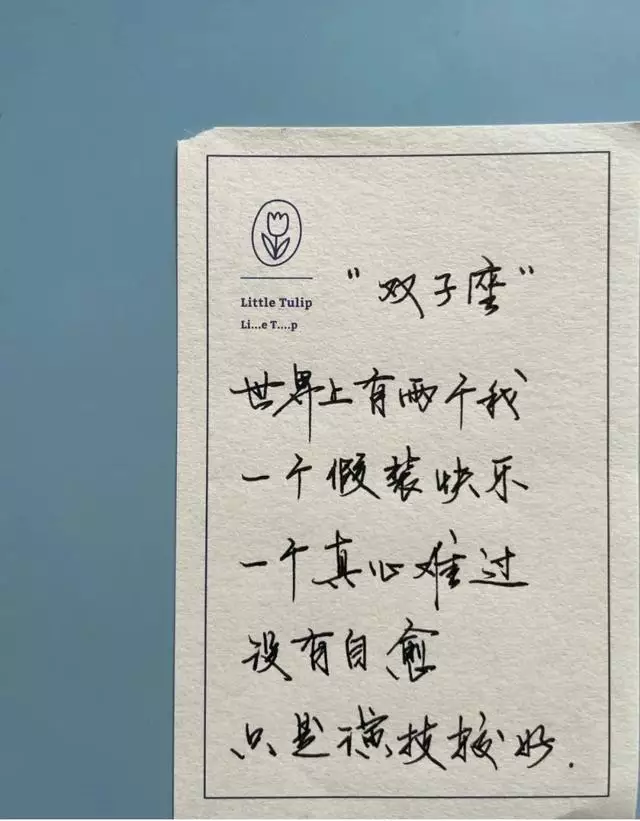 Little Tulip
Li...e T....p
"双子座"
世界上有两个我
一个假装快乐
一个真心难过
没有自愈
只是演技较好.